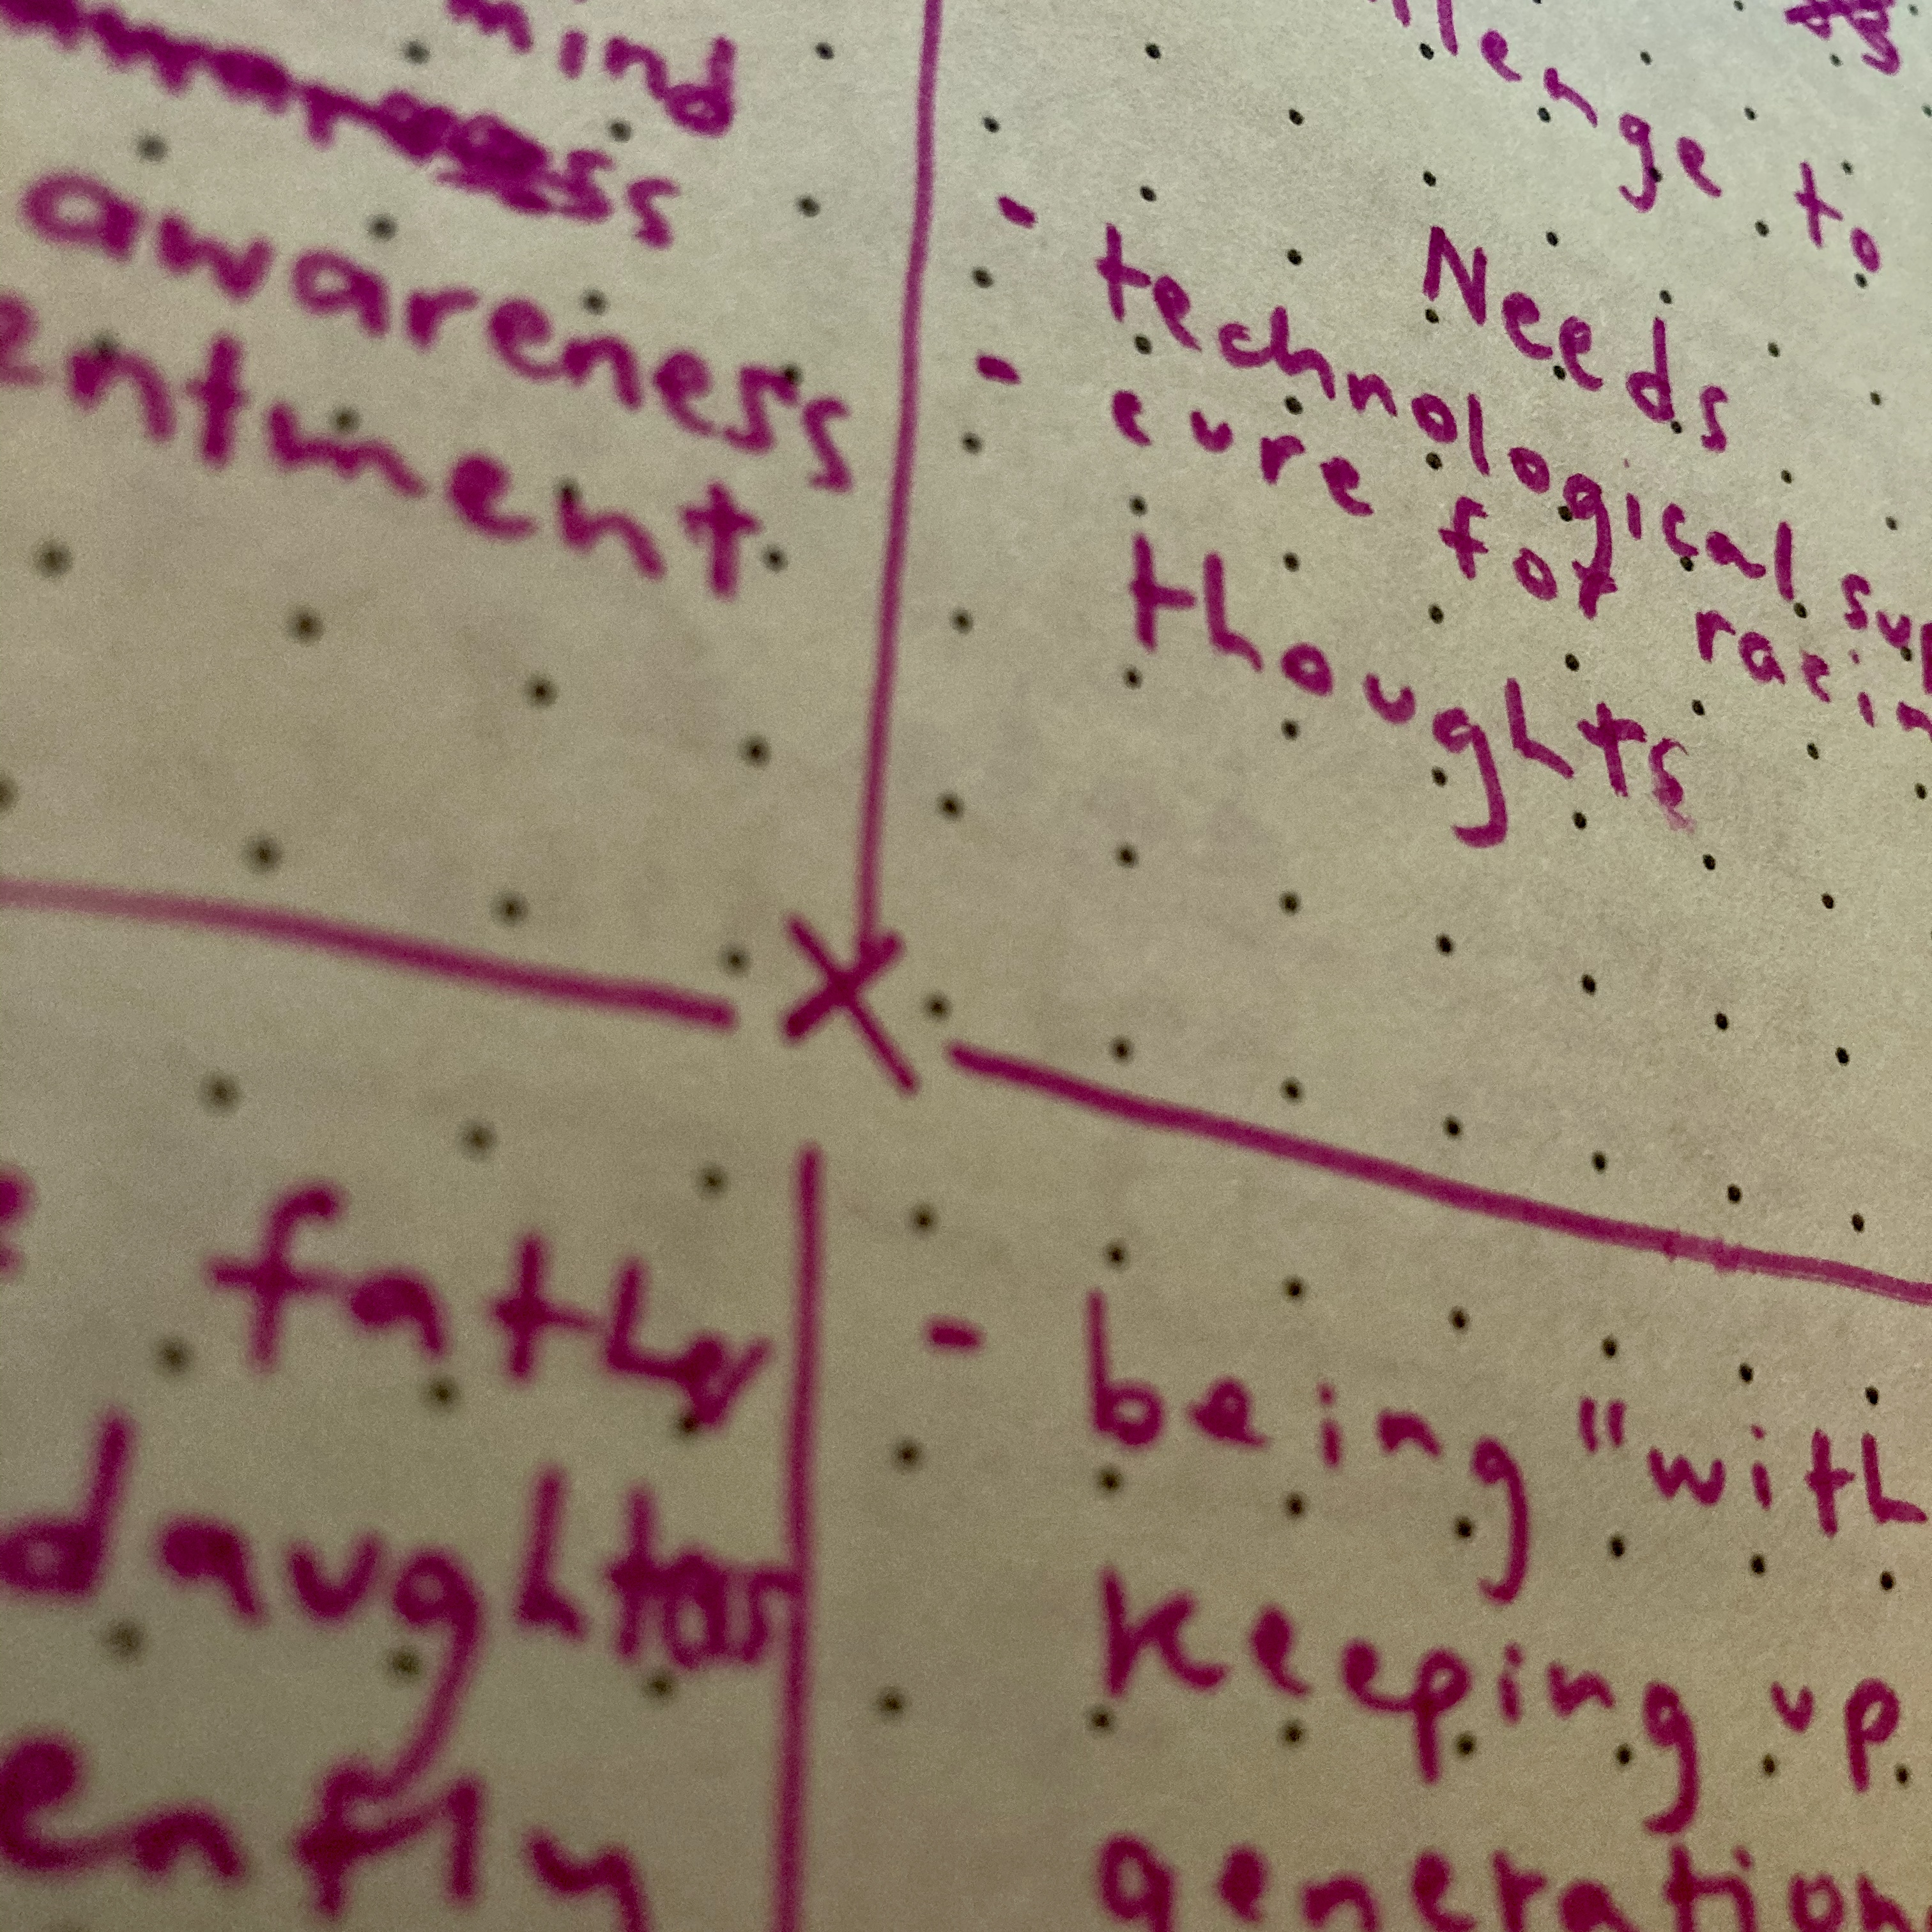 mind
awareness
entment
llenge to
Needs
- technological sup
- cure for racin
thoughts
father
daughter
ently
- being "with
keeping up
generation